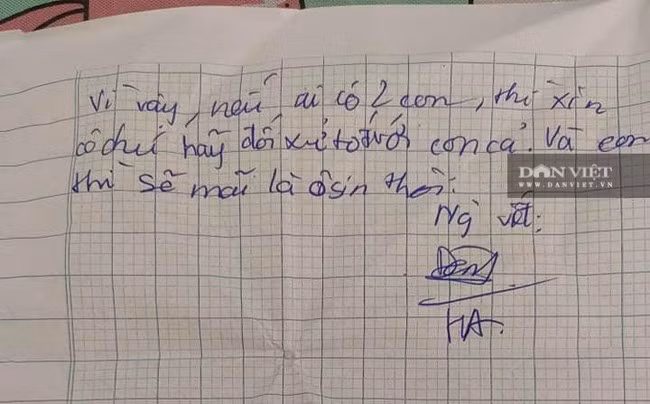 Vì vậy, nếu ai có 2 con, thì xin
cô chú hãy đối xử tốt với con cả. Và con
thì sẽ mãi là ôsin thôi.
DÂN VIỆT
WWW.DANVIET.VN
Ng viết:
HA.